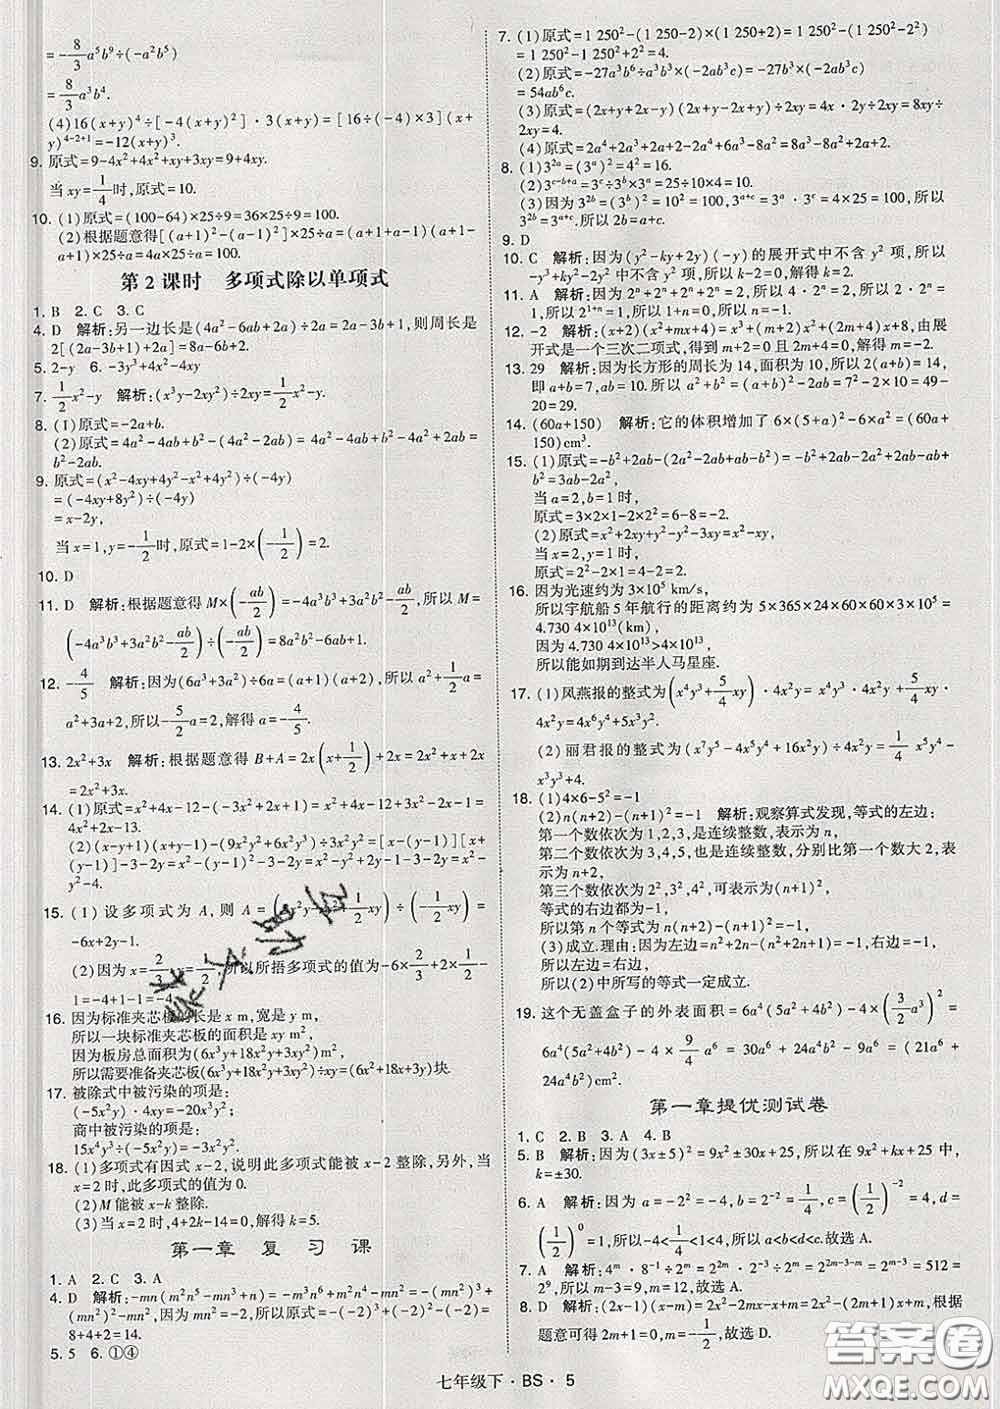 =-8/3a⁵b⁹÷(-a²b⁵)
=8/3a³b⁴.
(4)16(x+y)⁴÷[-4(x+y)²]·3(x+y)=[16÷(-4)×3](x+
y)⁴⁻²⁺¹=-12(x+y)³.
9. 原式=9-4x²+4x²+xy+3xy=9+4xy.
当xy=1/4时,原式=10.
10. (1)原式=(100-64)×25÷9=36×25÷9=100.
(2)根据题意得[(a+1)²-(a-1)²]×25÷a=(a+1-a+1)(a+1+
a-1)×25÷a=4a×25÷a=100.
第2课时 多项式除以单项式
1. B 2. C 3. C
4. D 解析:另一边长是(4a²-6ab+2a)÷2a=2a-3b+1,则周长是
2[(2a-3b+1)+2a]=8a-6b+2.
5. 2-y 6. -3y³+4x²-4xy
7. 1/2x²-y 解析:(x³y-2xy²)÷2xy=1/2x²-y.
8. (1)原式=-2a+b.
(2)原式=4a²-4ab+b²-(4a²-2ab)=4a²-4ab+b²-4a²+2ab=
b²-2ab.
9. 原式=(x²-4xy+4y²-x²+4y²)÷(-4y)
=(-4xy+8y²)÷(-4y)
=x-2y,
当x=1,y=-1/2时,原式=1-2×(-1/2)=2.
10. D
11. D 解析:根据题意得M×(-ab/2)=-4a³b³+3a²b²-ab/2,所以M=
(-4a³b³+3a²b²-ab/2)÷(-ab/2)=8a²b²-6ab+1.
12. -4/5 解析:因为(6a³+3a²)÷6a=(a+1)(a+2),所以a²+1/2a=
a²+3a+2,所以-5/2a=2,解得a=-4/5.
13. 2x²+3x 解析:根据题意得B+A=2x(x+1/2)+2x=2x²+x+2x
=2x²+3x.
14. (1)原式=x²+4x-12-(-3x²+2x+1)=x²+4x-12+3x²-2x-1=
4x²+2x-13.
(2)(x-y+1)(x+y-1)-(9x²y²+6x³y²)÷3x²y²=[x-(y-1)][x+
(y-1)]-3-2x=x²-(y-1)²-3-2x=x²-y²+2y-1-3-2x=x²-y²+2y-2x-4.
15. (1)设多项式为A,则A=(3x²y-xy²+1/2xy)÷(-1/2xy)=
-6x+2y-1.
(2)因为x=2/3,y=1/2,所以所捂多项式的值为-6×2/3+2×1/2-
1=-4+1-1=-4.
16. 因为标准夹芯板的长是x m,宽是y m,
所以一块标准夹芯板的面积是xy m²,
因为板房总面积为(6x³y+18x²y²+3xy)m²,
所以需要准备夹芯板(6x³y+18x²y²+3xy)÷xy=(6x²+18xy+3)块.
17. 被除式中被污染的项是:
(-5x²y)·4xy=-20x³y²;
商中被污染的项是:
15x⁴y³÷(-5x²y)=-3x²y².
18. (1)多项式有因式x-2,说明此多项式能被x-2整除,另外,当
x=2时,此多项式的值为0.
(2)M能被x-k整除.
(3)当x=2时,4+2k-14=0,解得k=5.
第一章 复习课
1. A 2. C 3. A
4. D 解析:-mn(m²n⁵-mn³+n)=-m³n⁶+m²n⁴+mn²=-(mn²)³+
(mn²)²-mn²,因为mn²=-2,所以原式=-(-2)³+(-2)²-(-2)=
8+4+2=14.
5. 5 6. ①④
7. (1)原式=1 250²-(1 250-2)×(1 250+2)=1 250²-(1 250²-2²)=
1 250²-1 250²+2²=4.
(2)原式=-27a³b⁶÷a³b²×(-2ab³c)=-27b³×(-2ab³c)
=54ab⁶c.
(3)原式=(2x+y+2x-y)(2x+y-2x+y)÷2xy=4x·2y÷2xy=8xy÷
2xy=4.
(4)原式=2a⁴+2a³+2a+2-2a⁴-2a³+6a³-8a²=6a³-8a²+2a+2.
8. (1)3²ᵃ=(3ᵃ)²=4²=16.
(2)3ᶜ⁻ᵇ⁺ᵃ=3ᶜ÷3ᵇ×3ᵃ=25÷10×4=10.
(3)因为3²ᵇ=(3ᵇ)²=10²=100,3ᵃ⁺ᶜ=3ᵃ·3ᶜ=4×25=100,所以
3²ᵇ=3ᵃ⁺ᶜ.所以2b=a+c.
9. D
10. C 解析:因为(y²-ky+2y)(-y)的展开式中不含y²项,所以
-y³+ky²-2y²中不含y²项,所以k-2=0,解得k=2.
11. A 解析:因为2ⁿ+2ⁿ+2ⁿ+2ⁿ=2,所以4·2ⁿ=2,所以2·2ⁿ=1,
所以2¹⁺ⁿ=1,所以1+n=0,所以n=-1.
12. -2 解析:(x+2)(x²+mx+4)=x³+(m+2)x²+(2m+4)x+8,由展
开式是一个三次二项式,得到m+2=0且2m+4=0,解得m=-2.
13. 29 解析:因为长方形的周长为14,面积为10,所以2(a+b)=14,
即a+b=7,ab=10,所以a²+b²=(a+b)²-2ab=7²-2×10=49-
20=29.
14. (60a+150) 解析:它的体积增加了6×(5+a)²-6×a²=(60a+
150)cm³.
15. (1)原式=-b²+2ab-(2a²-2ab+ab-b²)=-b²+2ab-2a²+2ab-ab+
b²=3ab-2a².
当a=2,b=1时,
原式=3×2×1-2×2²=6-8=-2.
(2)原式=x²+2xy-2xy-4y²+4y²-2x=x²-2x.
当x=2时,
原式=2²-2×2=4-4=0.
16. 因为光速约为3×10⁵ km/s,
所以宇航船5年航行的距离约为5×365×24×60×60×3×10⁵=
4.730 4×10¹³(km),
因为4.730 4×10¹³>4×10¹³,
所以能如期到达半人马星座.
17. (1)风燕报的整式为(x⁴y³+5/4xy)·4x²y=4x⁶y⁴+5x³y².
(2)丽君报的整式为(x⁷y⁵-4x⁵y⁴+16x²y)÷4x²y=1/4x⁵y⁴-
x³y³+4.
18. (1)4×6-5²=-1
(2)n(n+2)-(n+1)²=-1 解析:观察算式发现,等式的左边:
第一个数依次为1,2,3,是连续整数,表示为n,
第二个数依次为3,4,5,也是连续整数,分别比第一个数大2,表
示为n+2,
第三个数依次为2²,3²,4²,可表示为(n+1)²,
等式的右边都为-1,
所以第n个等式为n(n+2)-(n+1)²=-1.
(3)成立.理由:因为左边=n²+2n-(n²+2n+1)=-1,右边=-1,
所以左边=右边,
所以(2)中所写的等式一定成立.
19. 这个无盖盒子的外表面积=6a⁴(5a²+4b²)-4×(3/2a³)²=
6a⁴(5a²+4b²)-4×9/4a⁶=30a⁶+24a⁴b²-9a⁶=(21a⁶+
24a⁴b²)cm².
第一章提优测试卷
1. C 2. B 3. A 4. B
5. B 解析:因为(3x±5)²=9x²±30x+25,所以在9x²+kx+25中,
k=±30.
6. A 解析:因为a=-2²=-4,b=2⁻²=1/4,c=(1/2)⁻²=4,d=
(1/2)⁰=1,所以-4<1/4<1<4,所以a<b<d<c.故选A.
7. A 解析:4ᵐ·8⁻¹÷2ᵐ=2²ᵐ·2⁻³÷2ᵐ=2²ᵐ⁻³⁻ᵐ=2ᵐ⁻³=512=
2⁹,所以m-3=9,m=12,故选A.
8. D 解析:(2x-1)(x-m)=2x²-2mx-x+m=2x²-(2m+1)x+m,根据
题意可得2m+1=0,m=-1/2,故选D.
七年级下·BS·5
答案圈
MXQE.COM